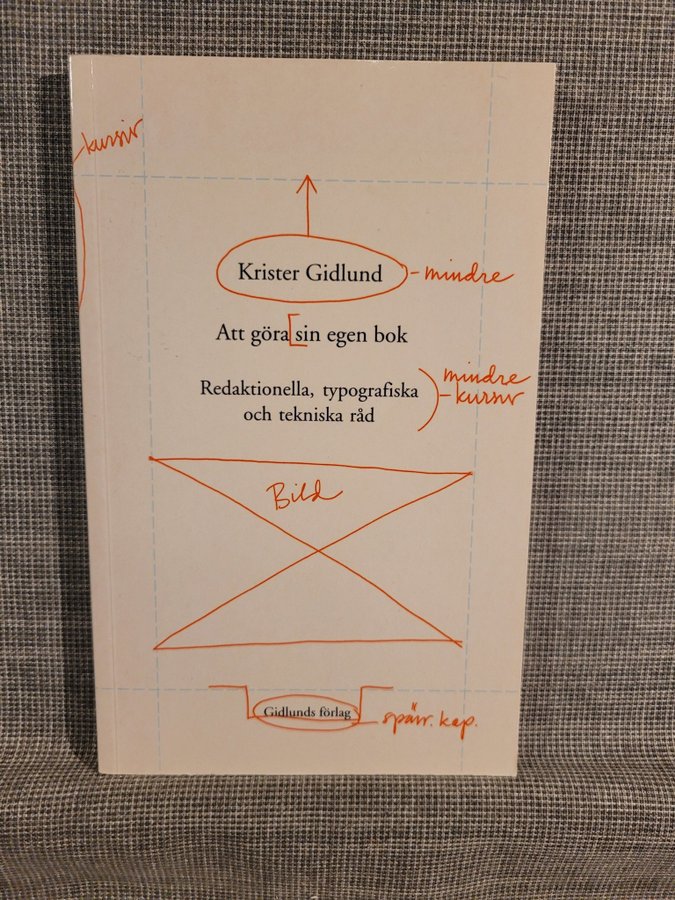 kursiv
Krister Gidlund
mindre
Att göra sin egen bok
Redaktionella, typografiska
och tekniska råd
mindre
kursiv
Bild
Gidlunds förlag
spärr. kap.